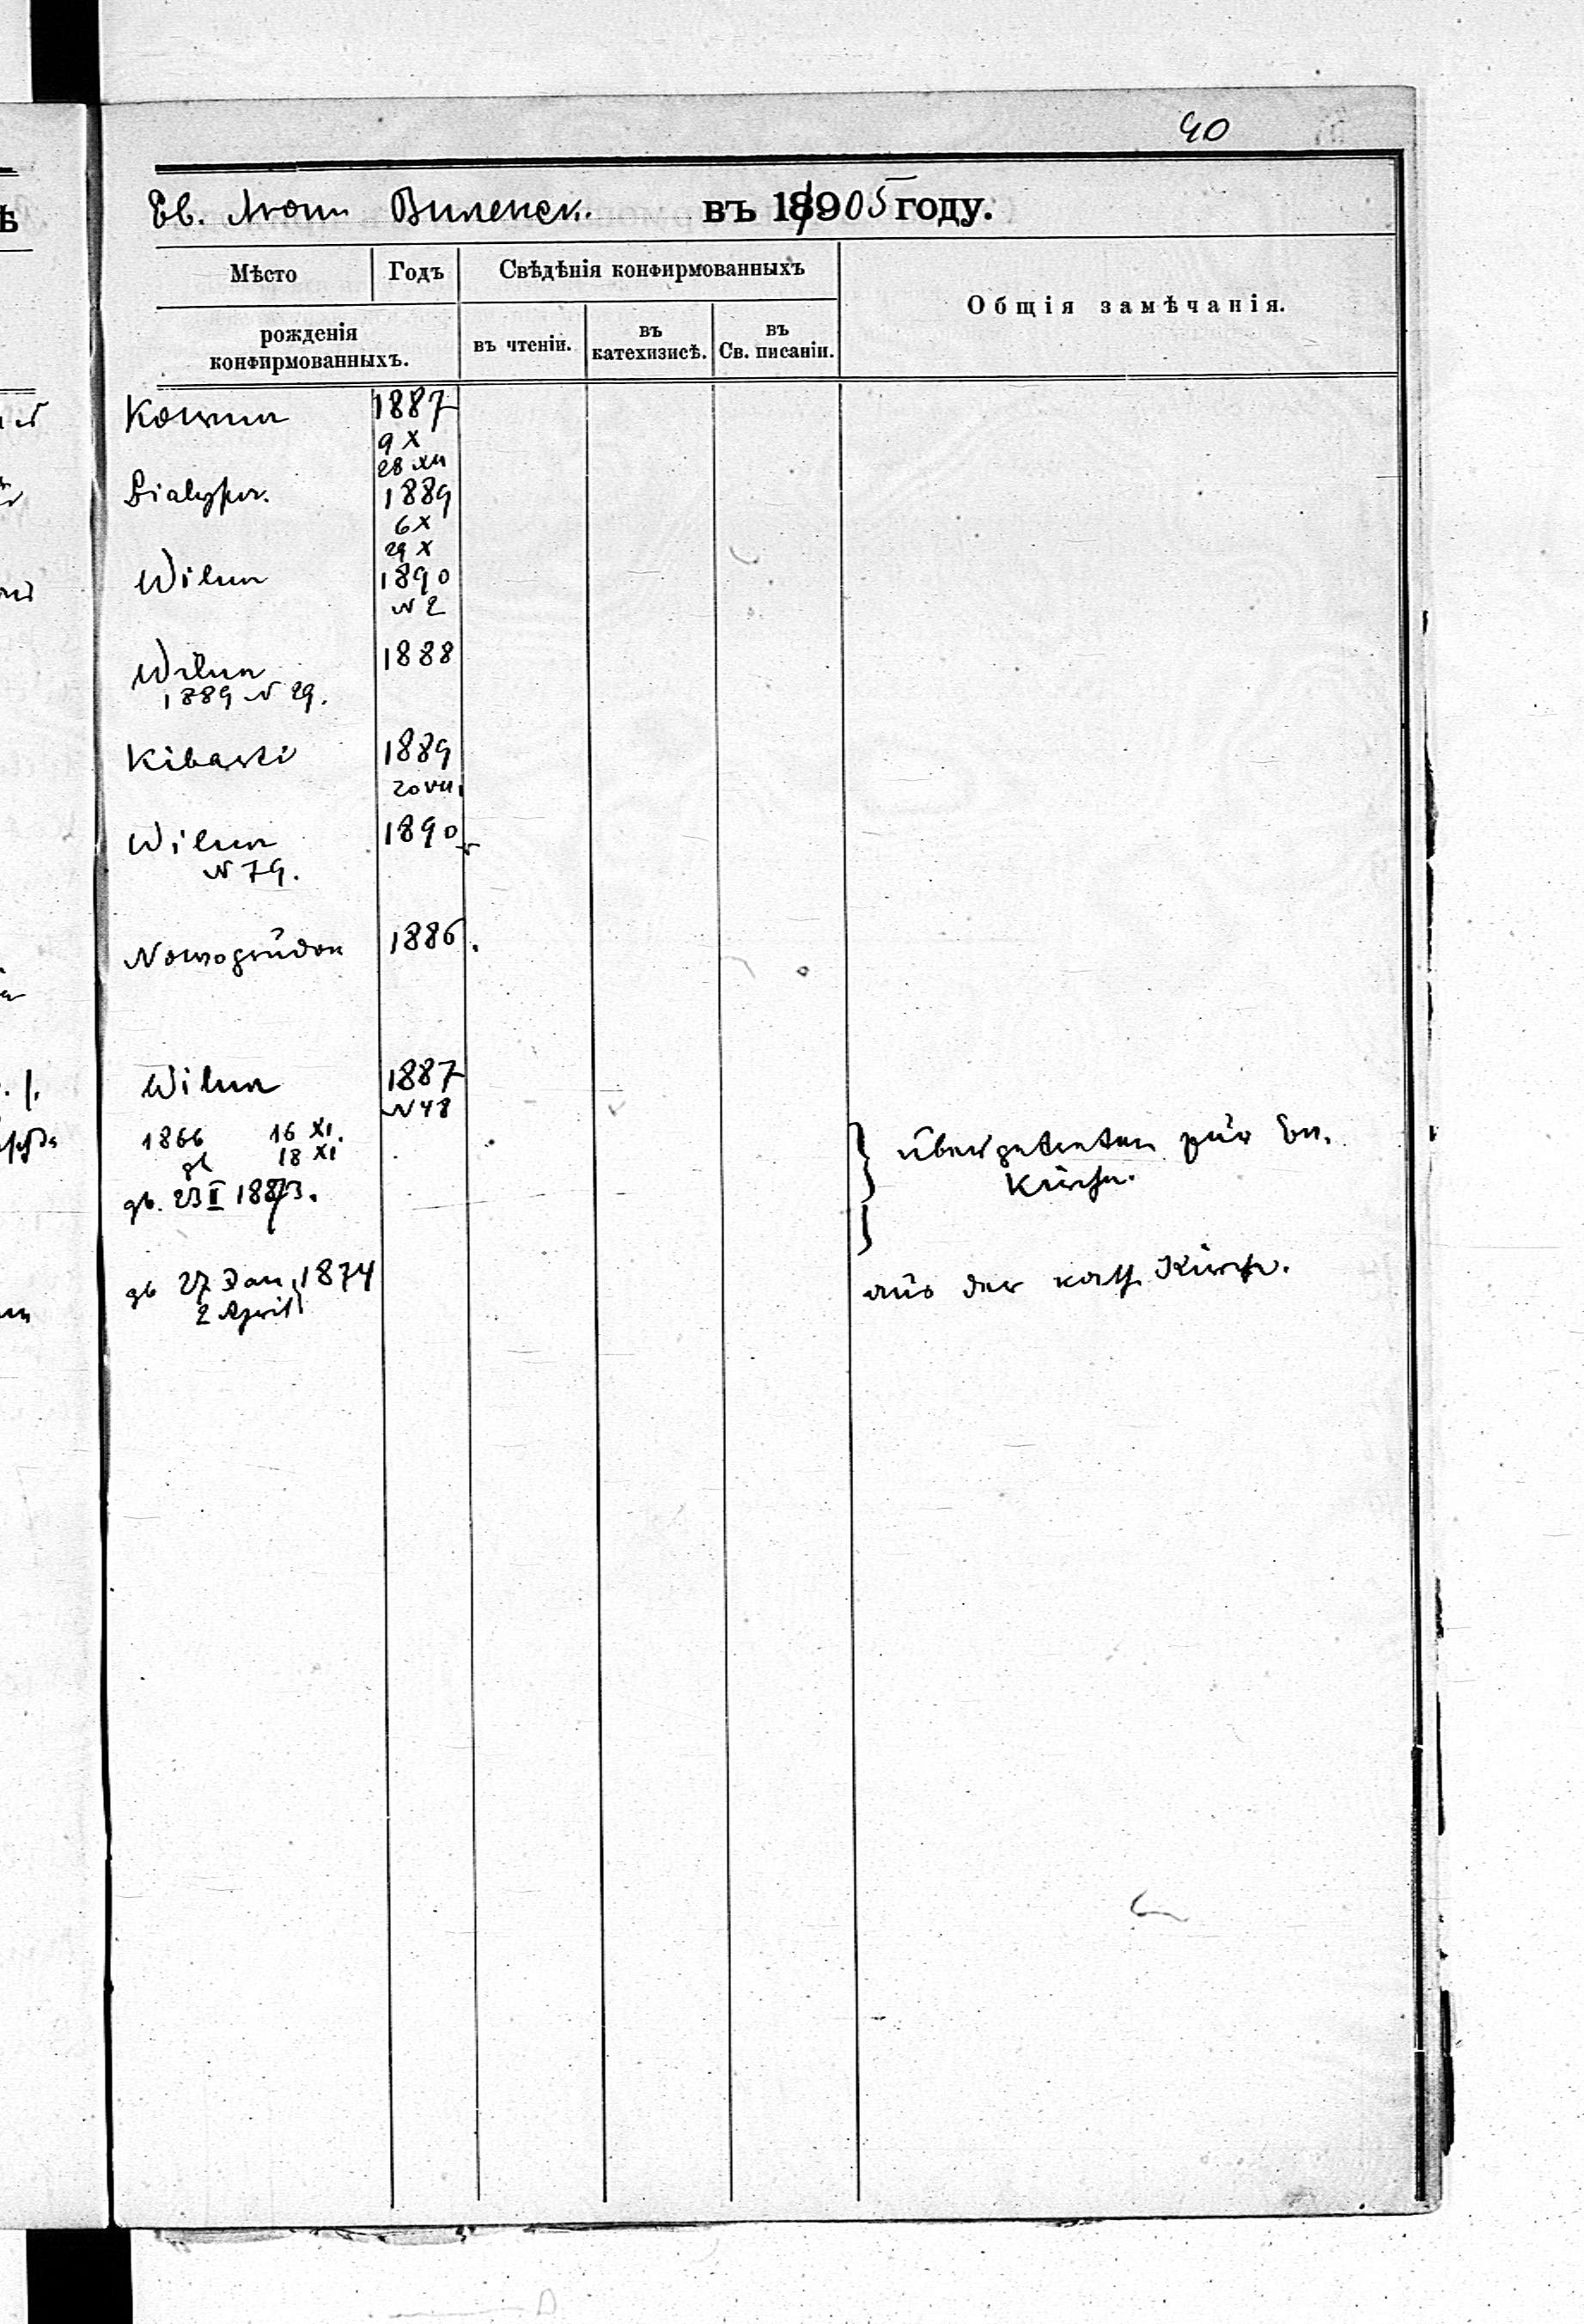 40
Ев. Лют. Виленск. въ 18905 году.
Мѣсто Годъ Свѣдѣнія конфирмованныхъ
Общія замѣчанія.
рожденія
конфирмованныхъ.
въ чтеніи.
въ катехизисѣ.
въ Св. писаніи.
Kowno 1887
9 X
28 XII
1889
6 X
29 X
Wilna 1890
N 2
Wilna 1888
1889 N 29.
Kibarti 1889
20 VII
Wilna 1890
N 79.
Nowogrudok 1886.
Wilna 1887
N 48
1866 16 XI.
18 XI
gb. 23 II 1873.
übergetreten zur Ev.
Kirche.
gb 27 Jan. 1874
2 April
aus der kath. Kirche.